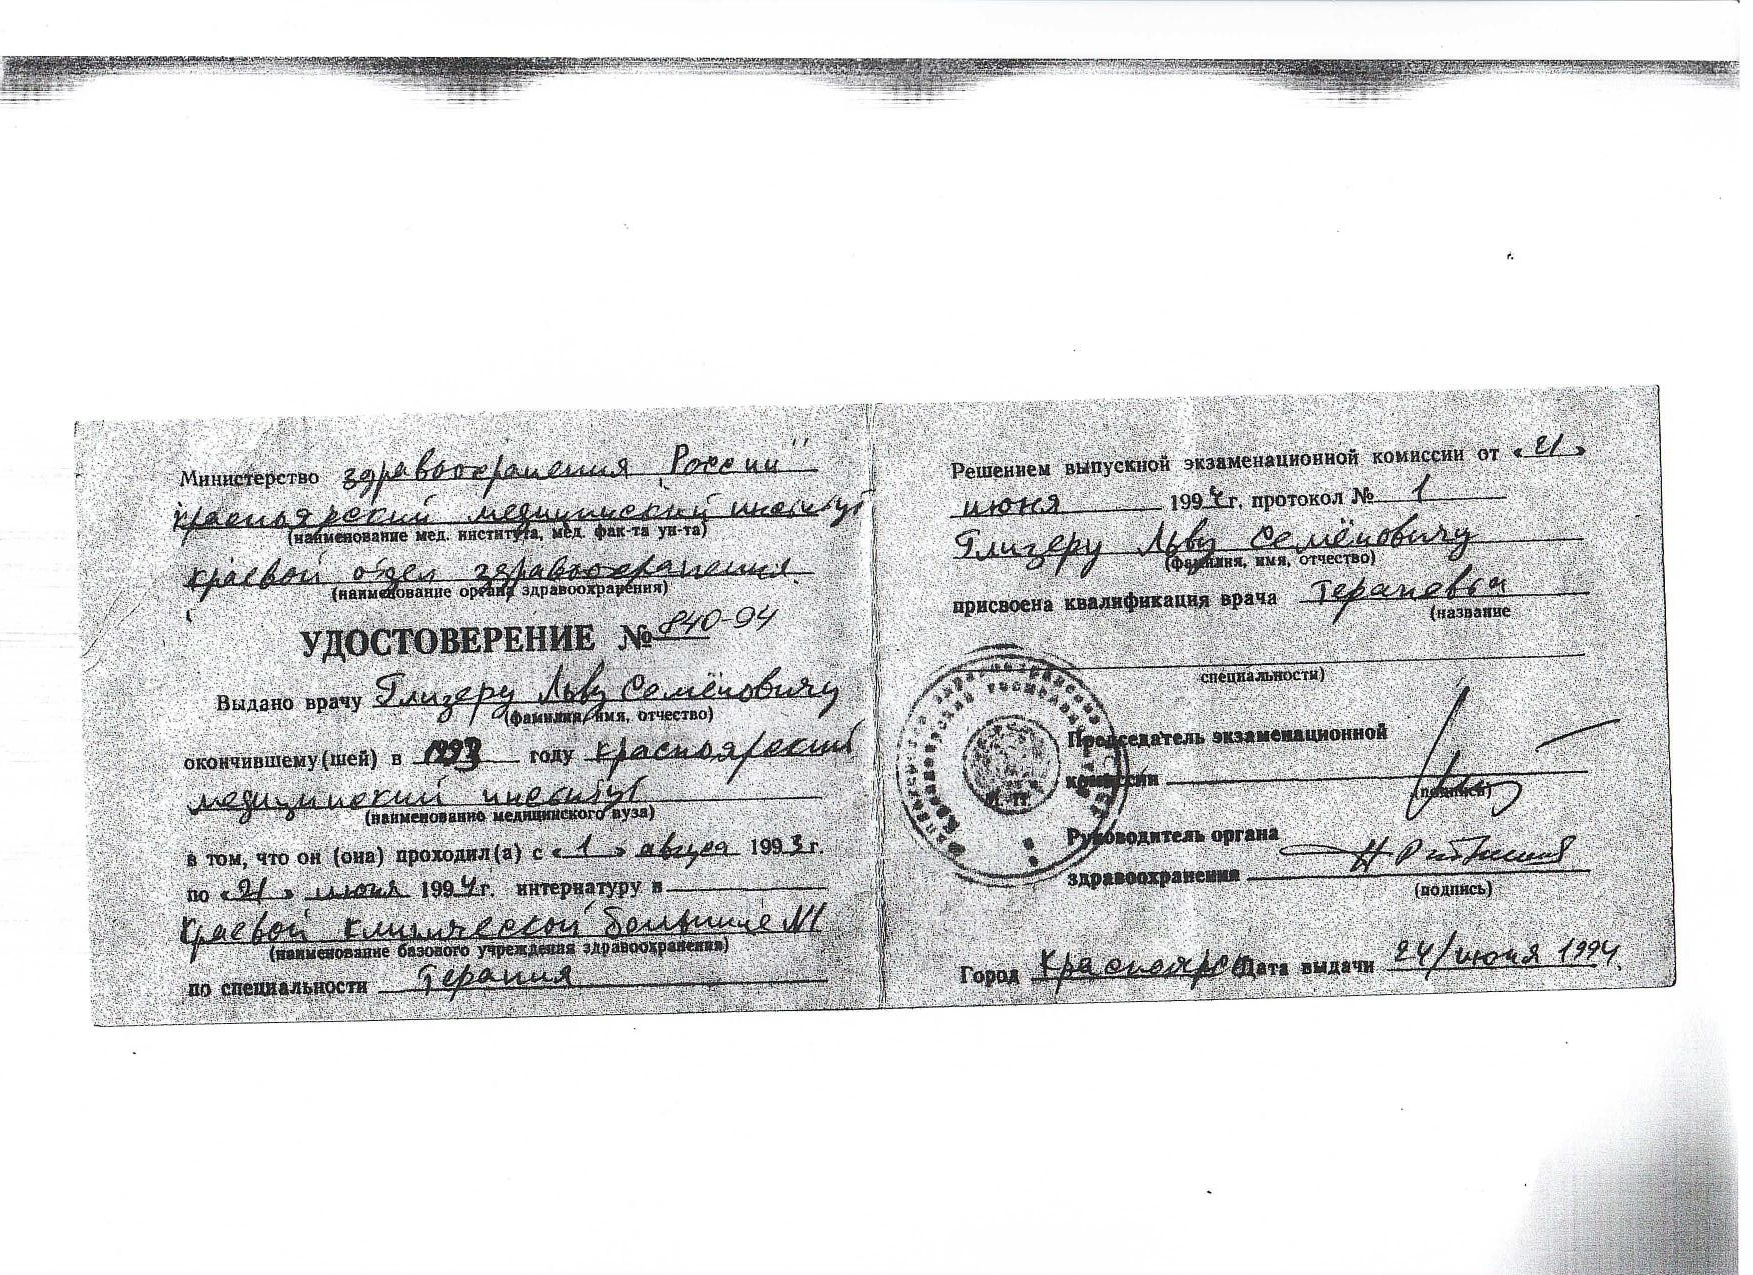 Министерство здравоохранения России"
Красноярский медицинский институт
(наименование мед. института, мед. фак-та ун-та)
краевой отдел здравоохранения
(наименование органа здравоохранения)
УДОСТОВЕРЕНИЕ № 840-94
Выдано врачу Глизеру Льву Семёновичу
(фамилия, имя, отчество)
окончившему(шей) в 1993 году красноярский
медицинский институт
(наименованио медицинского вуза)
в том, что он (она) проходил(а) с «1» августа 1993г.
по «21» июня 1994г. интернатуру в
Краевой клинической больнице №1
(наименование базового учреждения здравоохранения)
по специальности Терапия
Решением выпускной экзаменационной комиссии от «21»
июня 1994г. протокол № 1
Глизеру Льву Семёновичу
(фамилия, имя, отчество)
присвоена квалификация врача терапевта
(название
специальности)
Председатель экзаменационной
комиссии
(подпись)
Руководитель органа
здравоохранения
(подпись)
Город Красноярск Дата выдачи 24/июня 1994.